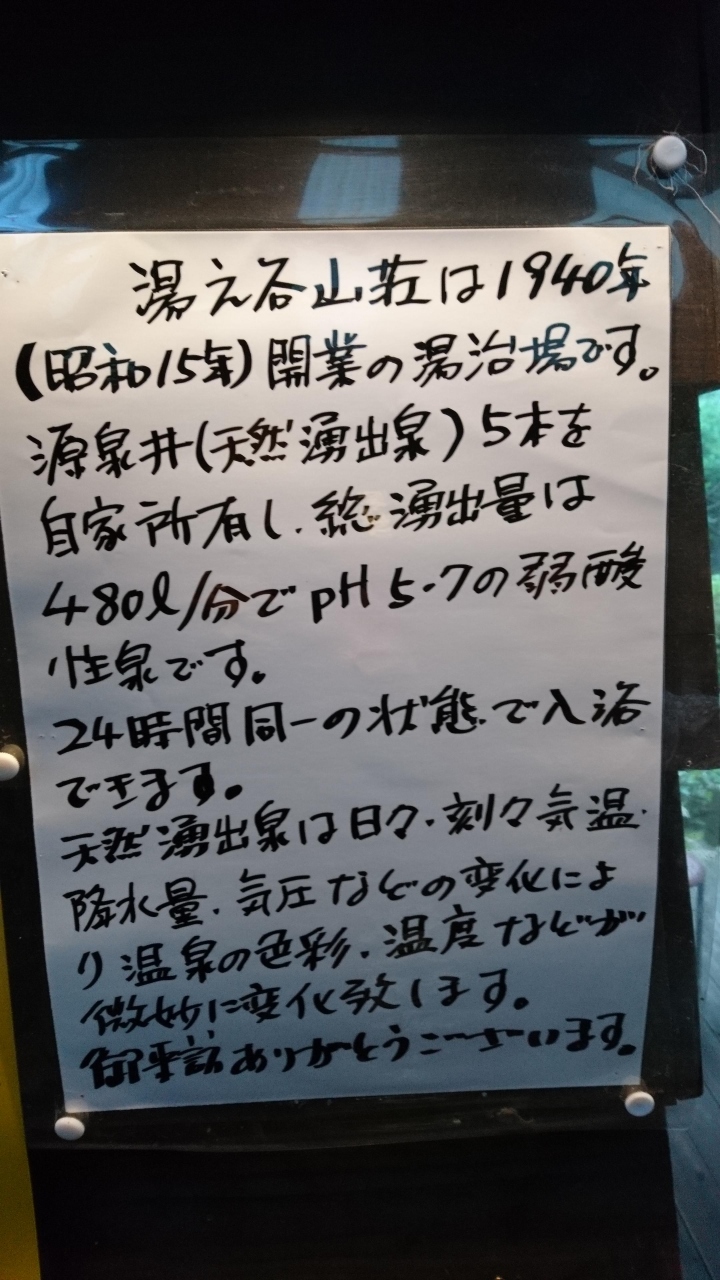 湯之谷山荘は1940年
(昭和15年)開業の湯治場です。
源泉井(天然湧出泉)5本を
自家所有し、総湧出量は
480l/分でpH5.7の弱酸
性泉です。
24時間同一の状態で入浴
できます。
天然湧出泉は日々、刻々気温、
降水量、気圧などの変化によ
り温泉の色彩、温度などが
微妙に変化致します。
御来訪ありがとうございます。